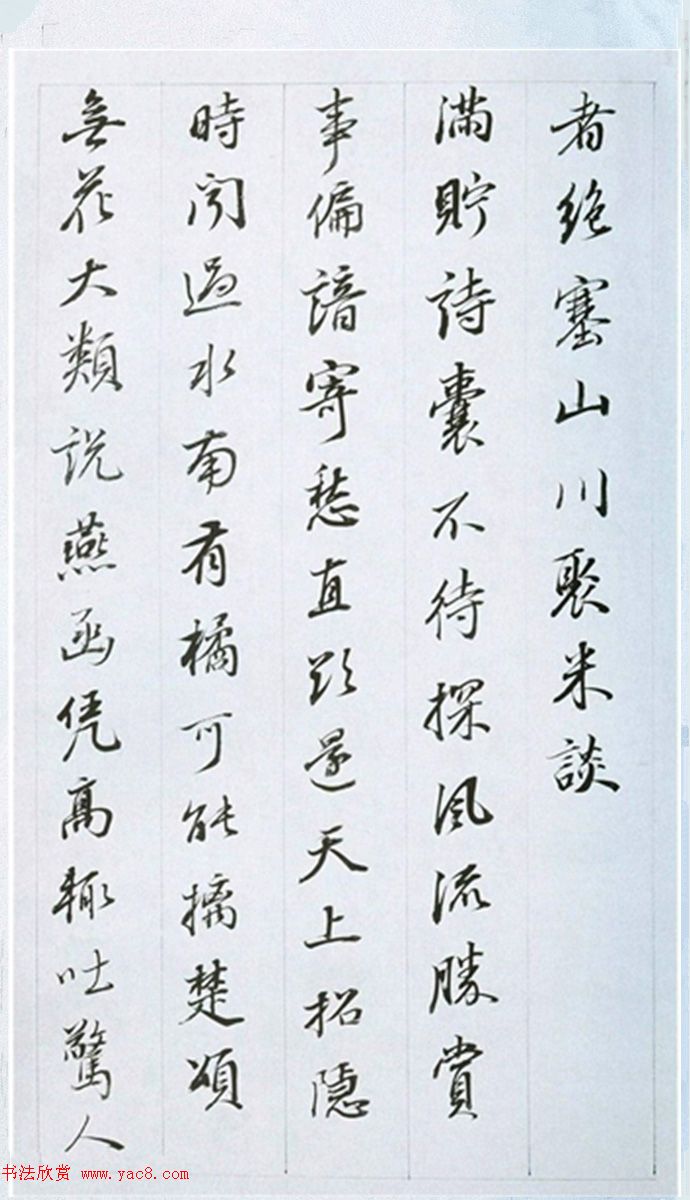 者絶塞山川聚米談
满貯詩囊不待探風流勝賞
事偏諳寄愁直欲還天上招隱
時聞過水南有橘可能摘楚頌
無花大類説燕函凭高輒吐驚人
书法欣赏 www.yac8.com